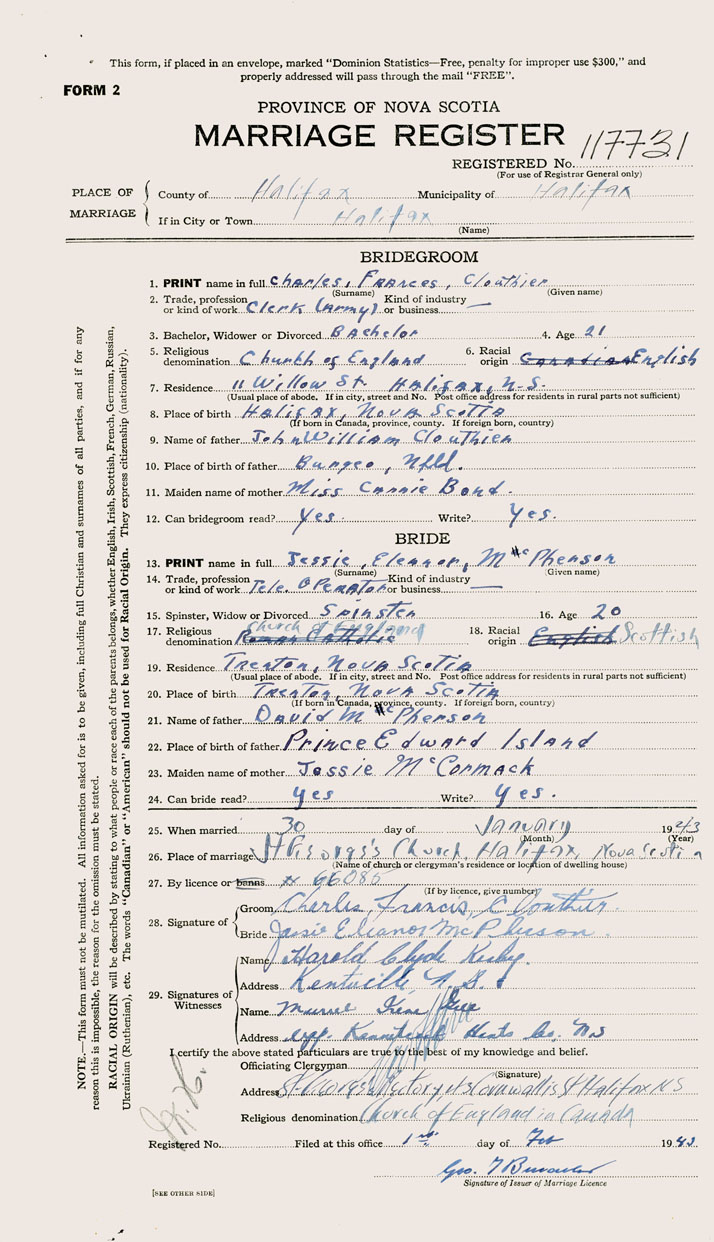 This form, if placed in an envelope, marked "Dominion Statistics—Free, penalty for improper use $300," and
properly addressed will pass through the mail "FREE".
FORM 2
PROVINCE OF NOVA SCOTIA
MARRIAGE REGISTER
117731
REGISTERED No.
(For use of Registrar General only)
PLACE OF MARRIAGE
County of Halifax Municipality of Halifax
If in City or Town Halifax
(Name)
BRIDEGROOM
1. PRINT name in full Charles, Frances, Clouthier
(Surname) (Given name)
2. Trade, profession or kind of work Clerk (Army) Kind of industry or business —
3. Bachelor, Widower or Divorced Bachelor 4. Age 21
5. Religious denomination Church of England 6. Racial origin Canadian English
7. Residence 11 Willow St. Halifax, N.S.
(Usual place of abode. If in city, street and No. Post office address for residents in rural parts not sufficient)
8. Place of birth Halifax, Nova Scotia
(If born in Canada, province, county. If foreign born, country)
9. Name of father John William Clouthier
10. Place of birth of father Burgeo, Nfld.
11. Maiden name of mother Miss Cannie Bond.
12. Can bridegroom read? Yes. Write? Yes.
BRIDE
13. PRINT name in full Jessie, Eleanor, McPherson
(Surname) (Given name)
14. Trade, profession or kind of work Tele. Operator Kind of industry or business —
15. Spinster, Widow or Divorced Spinster 16. Age 20
17. Religious denomination Roman Catholic Church of England 18. Racial origin English Scottish
19. Residence Trenton, Nova Scotia
(Usual place of abode. If in city, street and No. Post office address for residents in rural parts not sufficient)
20. Place of birth Trenton, Nova Scotia
(If born in Canada, province, county. If foreign born, country)
21. Name of father David McPherson
22. Place of birth of father Prince Edward Island
23. Maiden name of mother Jessie McCormack
24. Can bride read? yes Write? yes.
25. When married 30 day of January 1943
(Month) (Year)
26. Place of marriage St George's Church, Halifax, Nova Scotia
(Name of church or clergyman's residence or location of dwelling house)
27. By licence or banns # 66085
(If by licence, give number)
28. Signature of
Groom Charles, Francis, Clouthier.
Bride Jessie Eleanor McPherson.
29. Signatures of Witnesses
Name Harold Clyde
Address Kentville N.S.
Name Irene
Address Hants Co. N.S
I certify the above stated particulars are true to the best of my knowledge and belief.
Officiating Clergyman
(Signature)
Address St George's Rectory Cornwallis St Halifax NS
Religious denomination Church of England in Canada
Registered No. Filed at this office 1st day of Feb 1943.
Geo.
Signature of Issuer of Marriage Licence
[SEE OTHER SIDE]
NOTE.—This form must not be mutilated. All information asked for is to be given, including full Christian and surnames of all parties, and if for any
reason this is impossible, the reason for the omission must be stated.
RACIAL ORIGIN will be described by stating to what people or race each of the parents belongs, whether English, Irish, Scottish, French, German, Russian,
Ukrainian (Ruthenian), etc. The words "Canadian" or "American" should not be used for Racial Origin. They express citizenship (nationality).